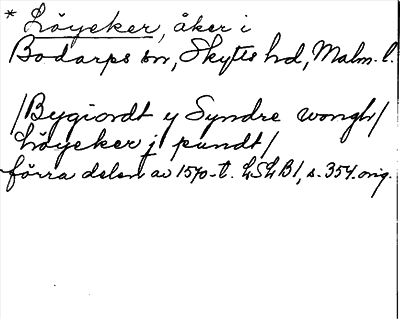 * Löyeker, åker i
Bodarps sn, Skytts hd, Malm. l.
/Bygiordt y Syndre wongh/
Löyeker j pundt/
förra delen av 1570-t. LSLB1, s. 354. orig.